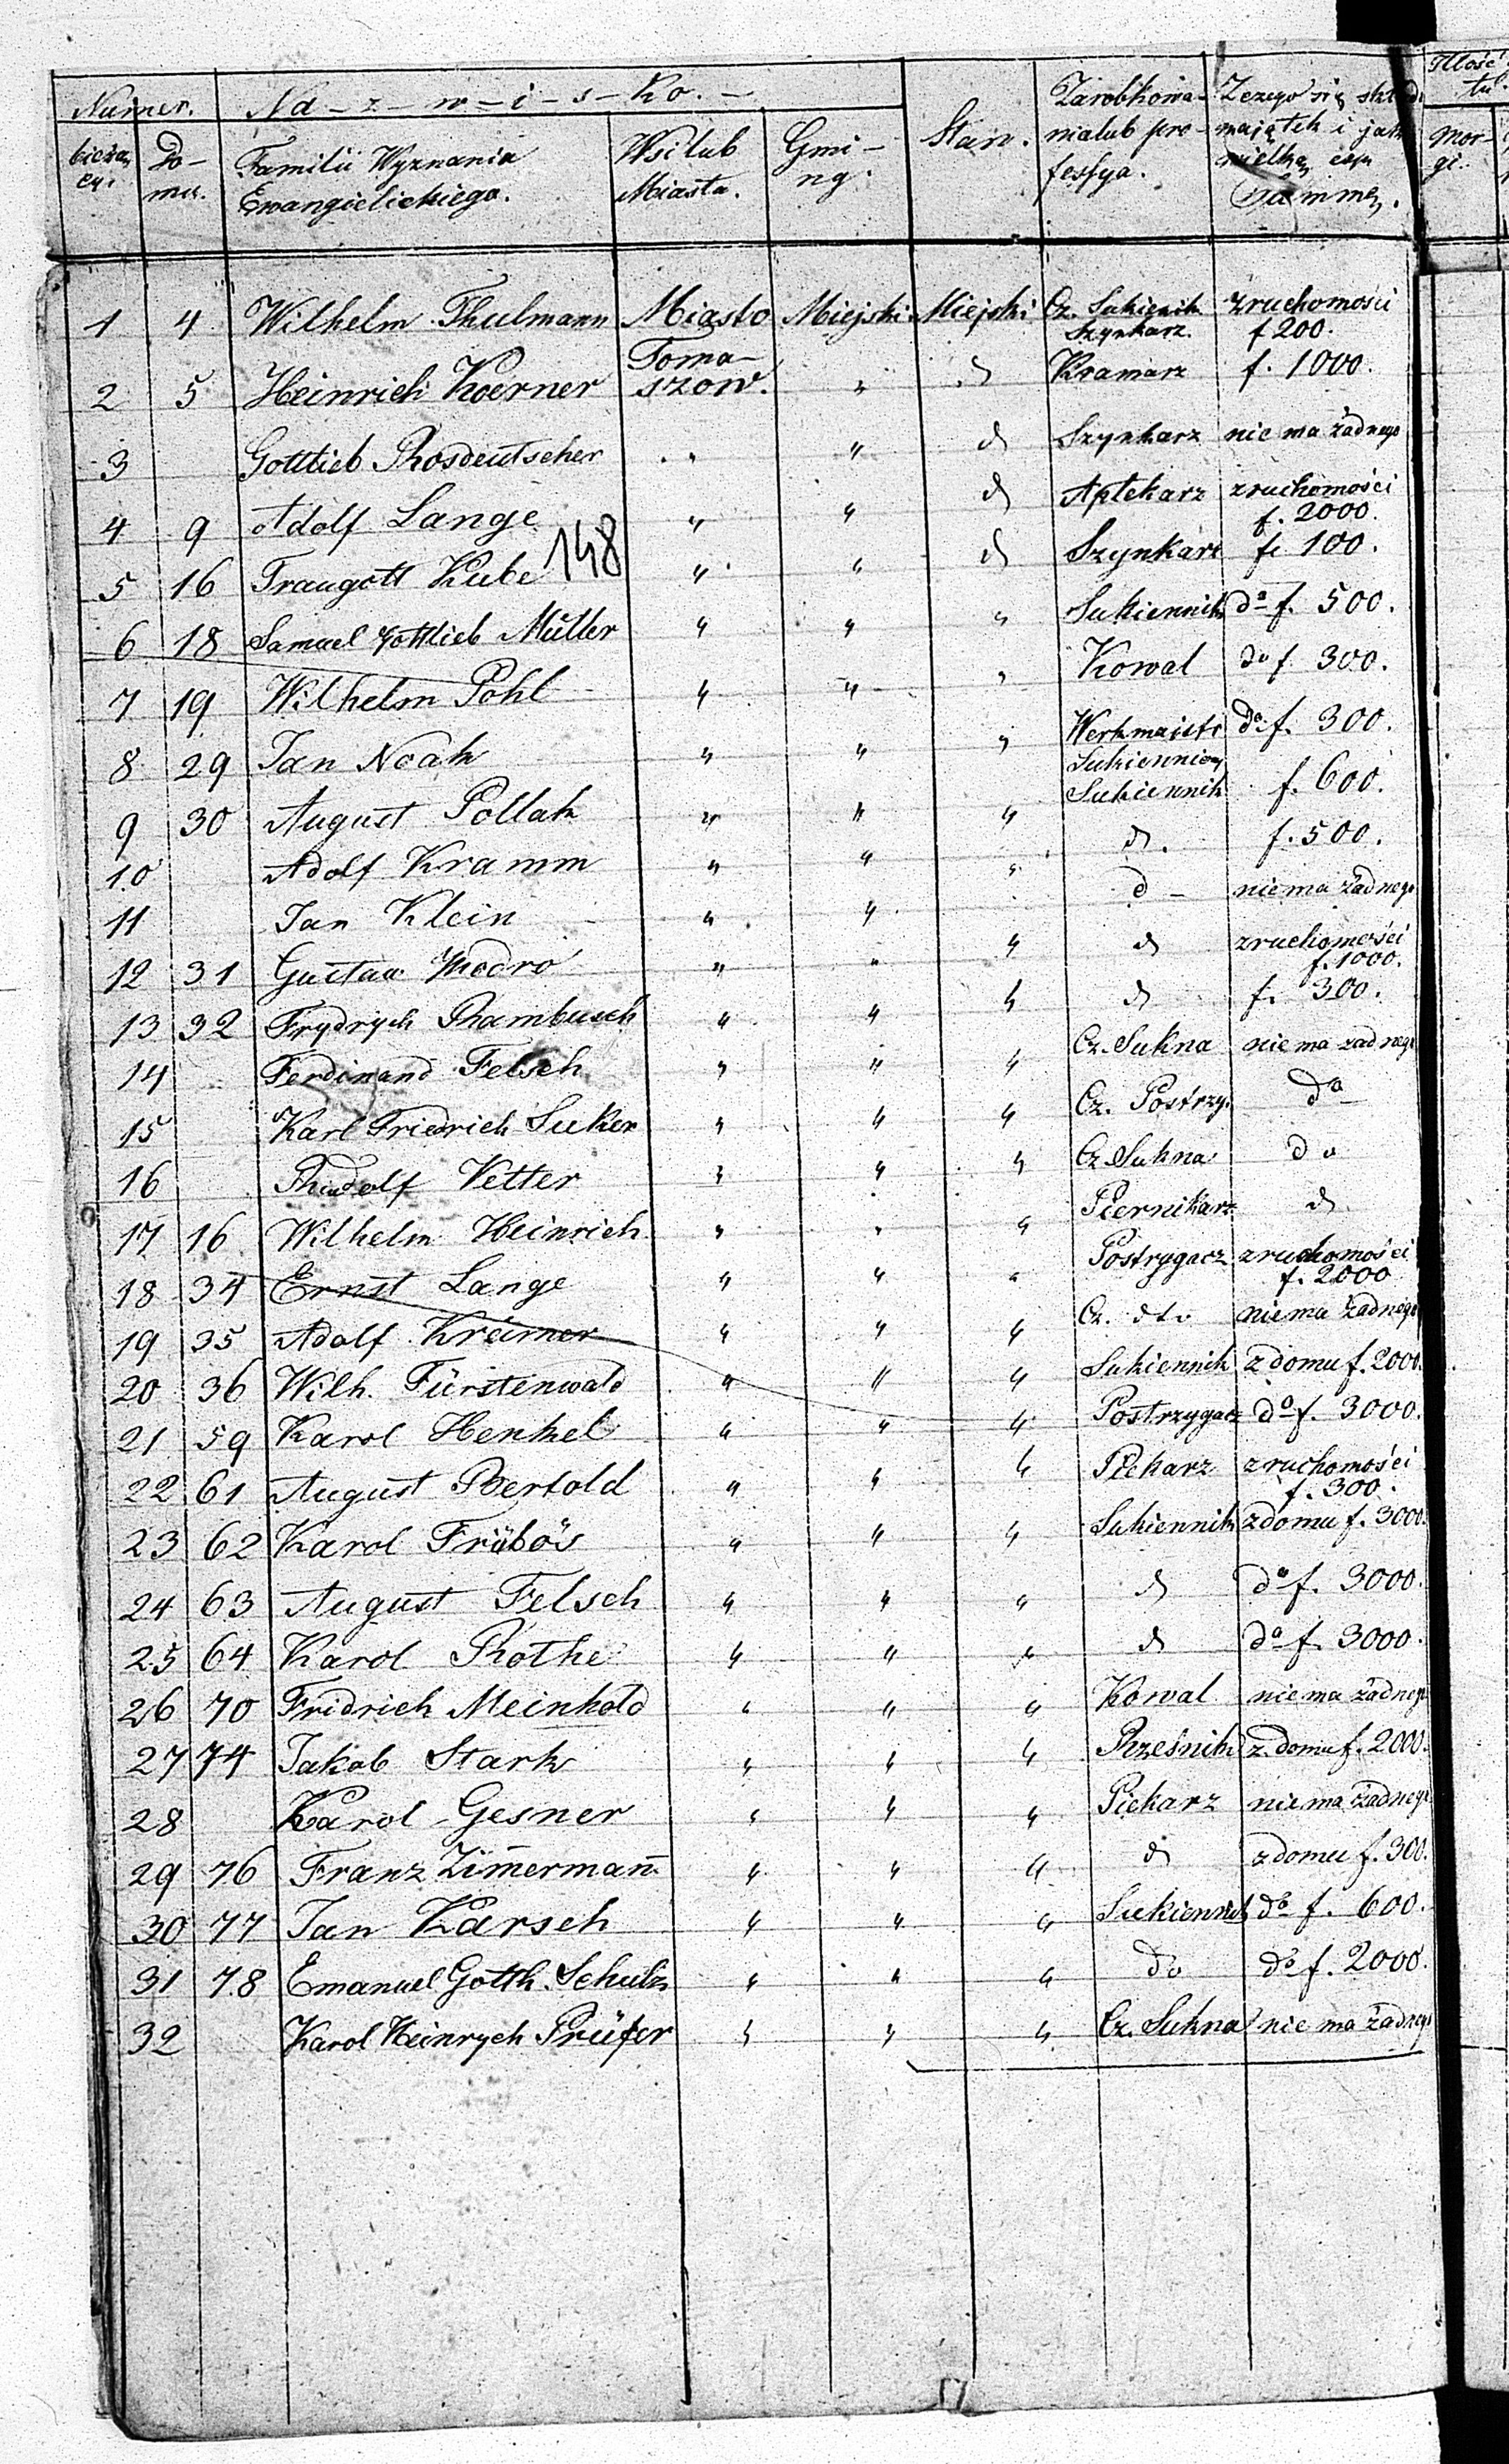 Numer. Na-z-w-i-s-ko.- Stan. Zarobkowania lub professya. Z czego się składa majątek i jak wielką czyni Summę. Ilość
bieżący Domu. Familii Wyznania Ewangielickiego. Wsi lub Miasta. Gminy. Morgi.
1 4 Wilhelm Thulmann Miasto Miejski Miejski Cz. Sukiennik Szynkarz. z ruchomości f 200.
2 5 Heinrich Koerner Tomaszow. " d Kramarz f. 1000.
3 Gottlieb Rosdeutscher " " d Szynkarz nie ma żadnego
4 9 Adolf Lange " " d Aptekarz z ruchomości f. 2000.
148
5 16 Traugott Kube " " d Szynkarz f. 100.
6 18 Samuel Gottlieb Müller " " " Sukiennik do f. 500.
7 19 Wilhelm Pohl " " " Kowal do f. 300.
8 29 Jan Noak " " " Werkmaistr Sukiennicy do f. 300.
9 30 August Pollak " " " Sukiennik f. 600.
10 Adolf Kramm " " " d. f. 500.
11 Jan Klein " " d - nie ma żadnego
12 31 Gustaw Modro " " " d z ruchomości f. 1000.
13 32 Frydrych Rambusch " " " d f. 300.
14 Ferdinand Felsch " " " Cz. Sukna nie ma żadnego
15 Karl Friedrich Suker " " " Cz. Postrzy. do
16 Rudolf Vetter " " " Cz. Sukna do
17 16 Wilhelm Heinrich " " " Piernikarz d
18 34 Ernst Lange " " " Postrygacz z ruchomości f. 2000
19 35 Adolf Krämer " " " Cz. dto nie ma żadnego
20 36 Wilh. Fürstenwald " " " Sukiennik z domu f. 2000.
21 59 Karol Henkel " " " Postrzygacz do f. 3000.
22 61 August Bertold " " " Piekarz z ruchomości f. 300.
23 62 Karol Frübös " " " Sukiennik z domu f. 3000.
24 63 August Felsch " " " d do f. 3000.
25 64 Karol Rothe " " " d do f. 3000.
26 70 Fridrich Meinhold " " " Kowal nie ma żadnego
27 74 Jakob Stark " " " Rzeźnik z domu f. 2000.
28 Karol Gesner " " " Piekarz nie ma żadnego
29 76 Franz Zim̄erman̄ " " " d z domu f. 300.
30 77 Jan Karsch " " " Sukiennik do f. 600.
31 78 Emanuel Gotth. Schulz " " " do do f. 2000.
32 Karol Heinrych Prüfer " " " Cz. Sukna nie ma żadnego